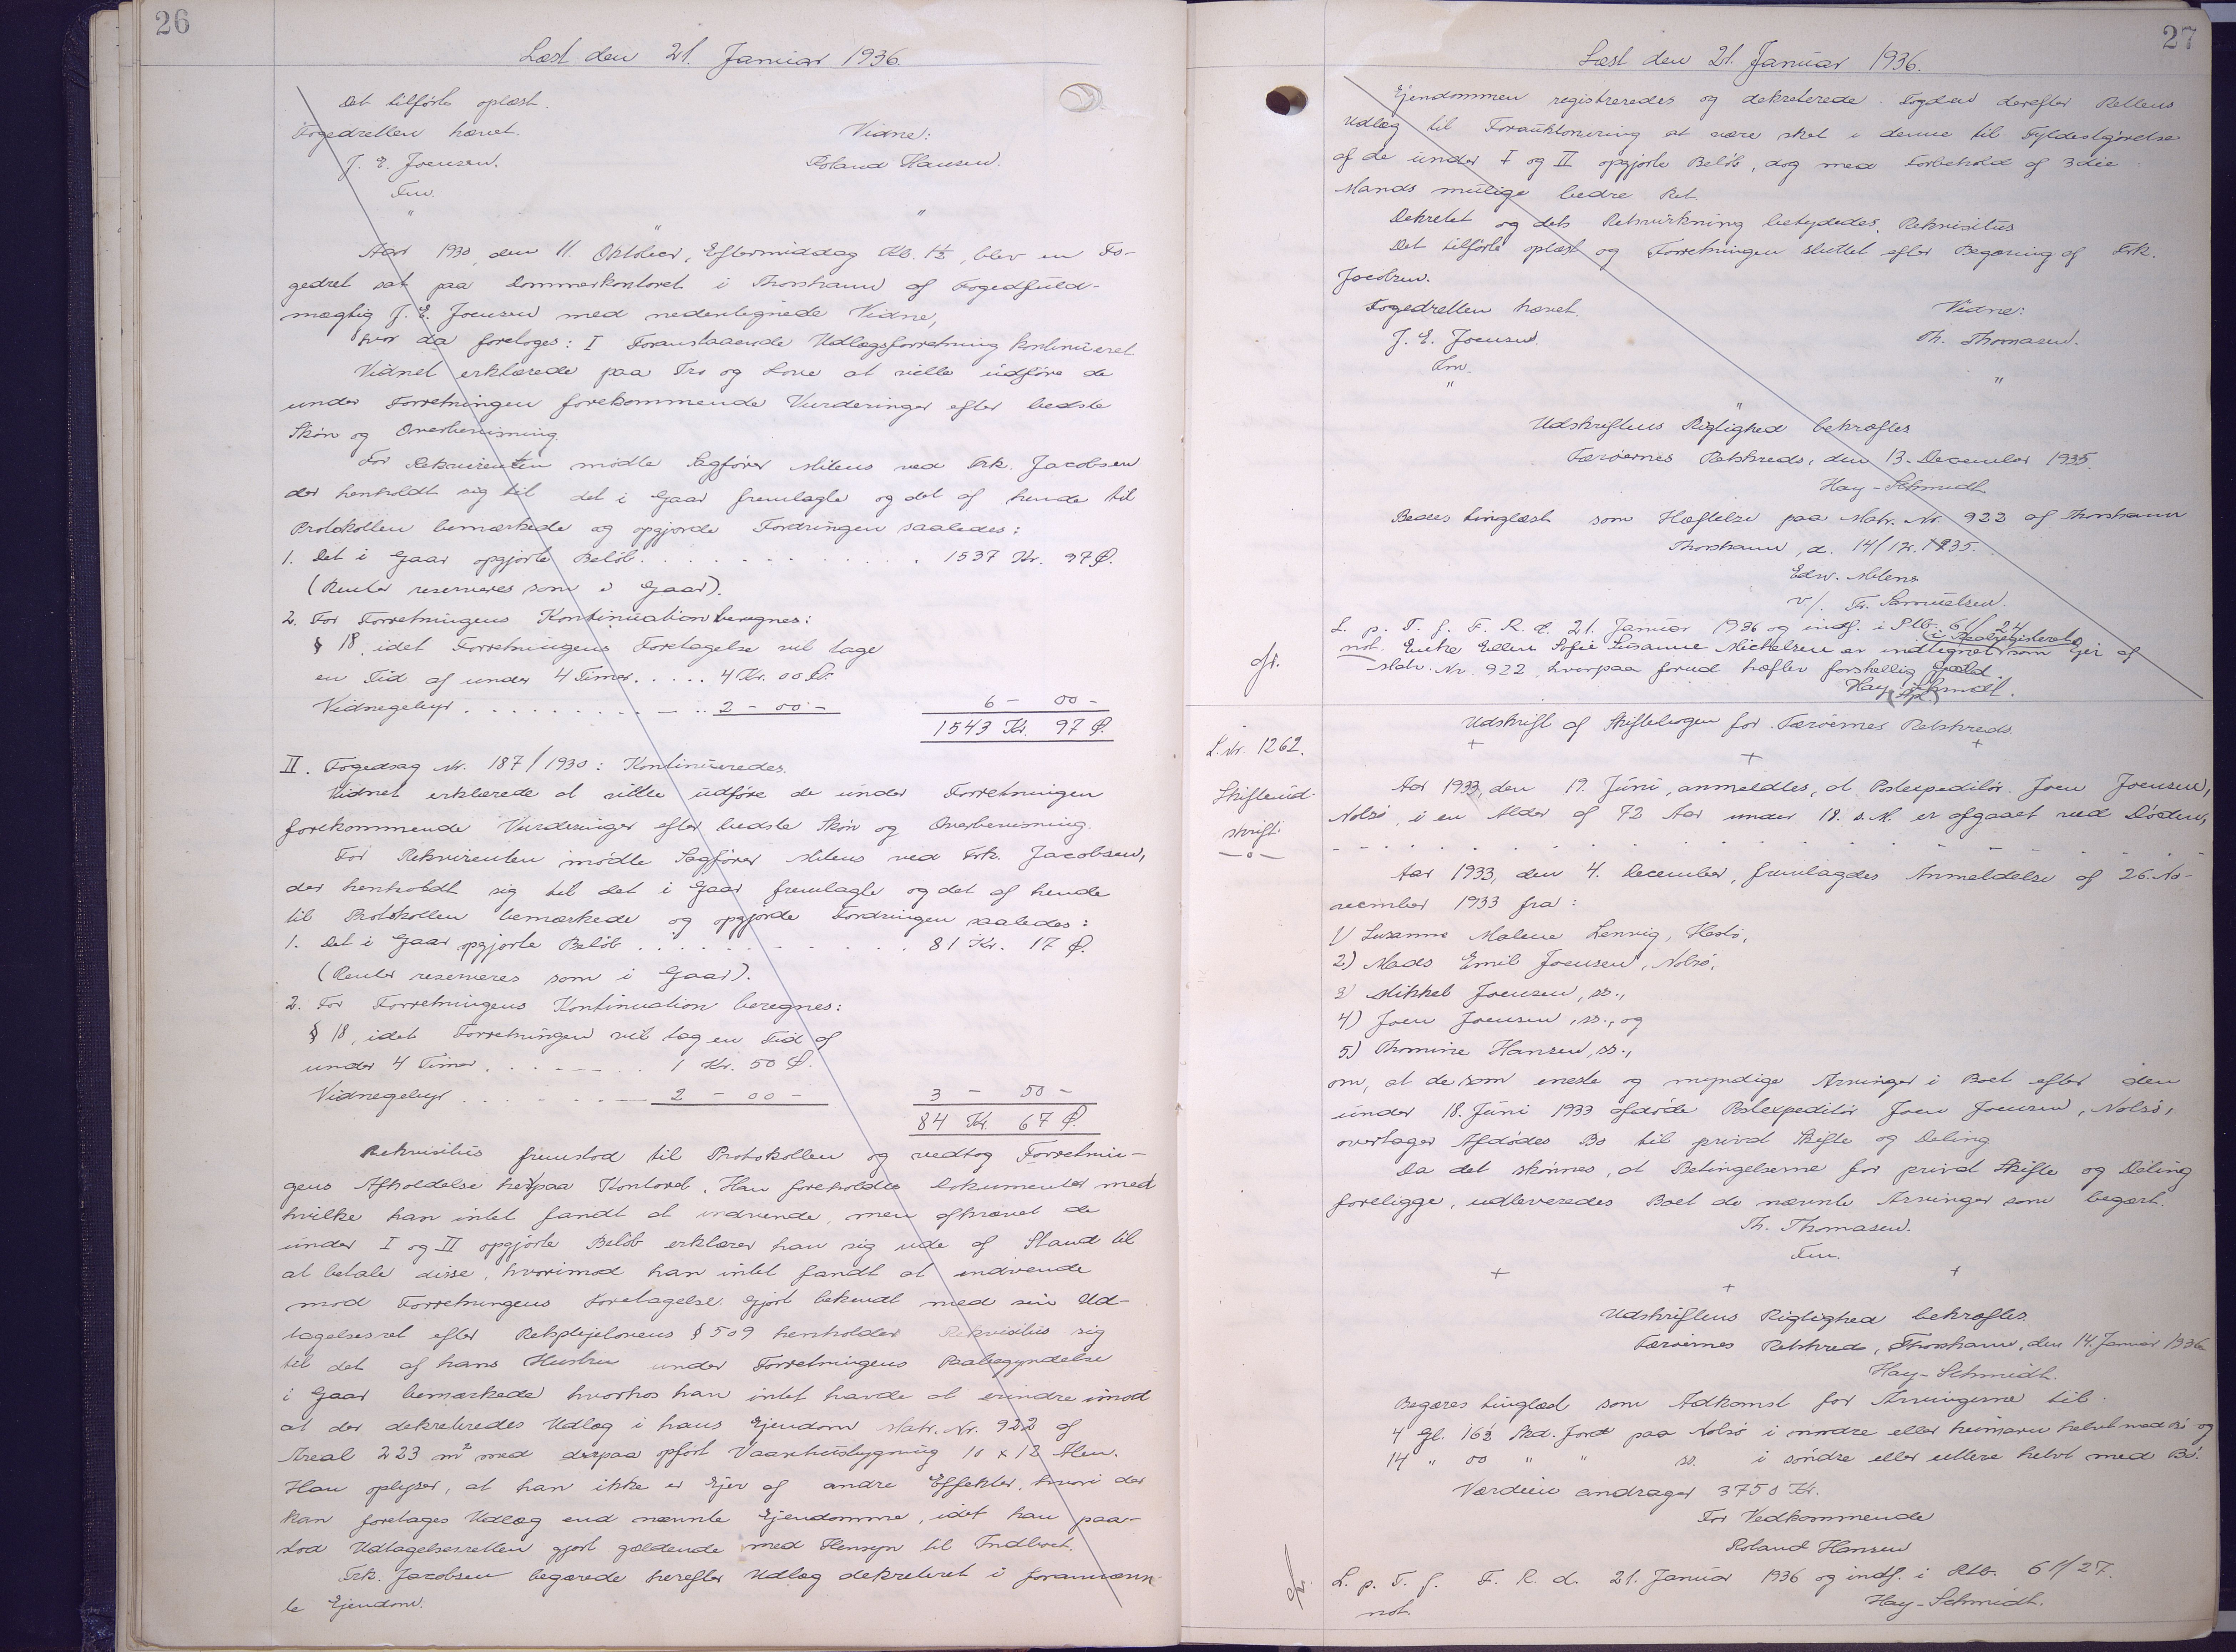 26
Læst den 21. Januar 1936.
Det tilførte oplæst.
Fogedretten hævet.
Vidne:
J. E. Joensen.
Roland Hansen.
Fm.
" " "
Aar 1930, den 11. Oktober, Eftermiddag Kl. 1½, blev en Fo-
gedret sat paa Dommerkontoret i Thorshavn af Fogedfuld-
mægtig J. E. Joensen med nedentegnede Vidne,
hvor da foretoges: I Foranstaaende Udlægsforretning kontinueret.
Vidnet erklærede paa Tro og Love at ville udføre de
under Forretningen forekommende Vurderinger efter bedste
Skøn og Overbevisning.
For Rekvirenten mødte Sagfører Mitens ved Frk. Jacobsen
der henholdt sig til det i Gaar fremlagte og det af hende til
Protokollen bemærkede og opgjorde Fordringen saaledes:
1. Det i Gaar opgjorte Beløb . . . . . . . . . . . . 1537 Kr. 97 Ø.
(Renter reserveres som i Gaar).
2. For Forretningens Kontinuation beregnes:
§ 18, idet Forretningens Foretagelse vil tage
en Tid af under 4 Timer . . . . . 4 Kr. 00 Ø.
Vidnegebyr . . . . . . . . . . . 2 - 00 - 6 - 00 -
1543 Kr. 97 Ø.
II. Fogedsag Nr. 187/1930: Kontinueredes.
Vidnet erklærede at ville udføre de under Forretningen
forekommende Vurderinger efter bedste Skøn og Overbevisning.
For Rekvirenten mødte Sagfører Mitens ved Frk. Jacobsen,
der henholdt sig til det i Gaar fremlagte og det af hende
til Protokollen bemærkede og opgjorde Fordringen saaledes:
1. Det i Gaar opgjorte Beløb . . . . . . . . . . . 81 Kr. 17 Ø.
(Renter reserveres som i Gaar).
2. For Forretningens Kontinuation beregnes:
§ 18, idet Forretningen vil tag en Tid af
under 4 Timer . . . . . . . 1 Kr. 50 Ø.
Vidnegebyr . . . . . . . . 2 - 00 - 3 - 50 -
84 Kr. 67 Ø.
Rekvisitus fremstod til Protokollen og vedtog Forretnin-
gens Afholdelse her paa Kontoret. Han foreholdtes Dokumenter med
hvilke han intet fandt at indvende, men afkrævet de
under I og II opgjorte Beløb erklærer han sig ude af Stand til
at betale disse, hvorimod han intet fandt at indvende
mod Forretningens Foretagelse. Gjort bekendt med sin Ud-
tagelsesret efter Retsplejelovens § 509 henholder Rekvisitus sig
til det af hans Hustru under Forretningens Paabegyndelse
i Gaar bemærkede hvorhos han intet havde at erindre imod
at der dekreteredes Udlæg i hans Ejendom Matr. Nr. 922 af
Areal 223 m² med derpaa opført Vaanhusbygning 10 x 12 Alen.
Han oplyser, at han ikke er Ejer af andre Effekter, hvori der
kan foretages Udlæg end nævnte Ejendomme, idet han paa-
stod Udtagelsesretten gjort gældende med Hensyn til Indboet.
Frk. Jacobsen begærede herefter Udlæg dekreteret i forannævn-
te Ejendom.
27
Læst den 21. Januar 1936.
Ejendommen registreredes og dekreterede Fogden derefter Rettens
Udlæg til Forauktionering at være sket i denne til Fyldestgørelse
af de under I og II opgjorte Beløb, dog med Forbehold af 3die
Mands mulige bedre Ret.
Dekretet og dets Retsvirkning betydedes Rekvisitus
Det tilførte oplæst og Forretningen sluttet efter Begæring af Frk.
Jacobsen.
Fogedretten hævet.
Vidne:
J. E. Joensen.
Th. Thomasen.
Fm.
" " "
Udskriftens Rigtighed bekræftes
Færøernes Retskreds, den 13. December 1935.
Hay-Schmidt
Bedes tinglæst som Hæftelse paa Matr. Nr. 922 af Thorshavn
Thorshavn, d. 14/12. 1935.
Edw. Mitens
v/. Fr. Samuelsen.
L. p. T. f. F. R. d. 21. Januar 1936 og indf. i Ptb. 61/24
not. Enke Ellen Sofie Susanne Mickelsen er indtegnet (i Realregisteret) som Ejer af
Matr. Nr. 922, hvorpaa forud hæfter forskellig Gæld.
Hay-Schmidt.
L. Nr. 1262.
Skifteud-
skrift.
—o—
Udskrift af Skiftebogen for Færøernes Retskreds.
+ + +
Aar 1933, den 19. Juni, anmeldtes, at Postexpeditør Joen Joensen,
Nolsø, i en Alder af 72 Aar under 18. d. M. er afgaaet ved Døden,
- - - - - - - - - - - - - - - -
Aar 1933, den 4. December, fremlagdes Anmeldelse af 26. No-
vember 1933 fra:
1) Susanne Malene Lenvig, Hestø,
2) Mads Emil Joensen, Nolsø,
3) Mikkel Joensen, ss.,
4) Joen Joensen, ss., og
5) Thomine Hansen, ss.,
om, at de som eneste og myndige Arvinger i Boet efter den
under 18. Juni 1933 afdøde Postexpeditør Joen Joensen, Nolsø,
overtager Afdødes Bo til privat Skifte og Deling
Da det skønnes, at Betingelserne for privat Skifte og Deling
foreligge, udleveredes Boet de nævnte Arvinger som begært.
Th. Thomasen.
Fm.
+ + +
Udskriftens Rigtighed bekræftes.
Færøernes Retskreds, Thorshavn, den 14. Januar 1936
Hay-Schmidt.
Begæres tinglæst som Adkomst for Arvingerne til
4 Gl. 16½ Skd. Jord paa Nolsø i nordre eller heimaru helvt med Bø og
14 " 00 " " ss. i søndre eller uttere helvt med Bø.
Værdien andrager 3750 Kr.
For Vedkommende
Roland Hansen
L. p. T. f. F. R. d. 21. Januar 1936 og indf. i Ptb. 61/27.
not.
Hay-Schmidt.